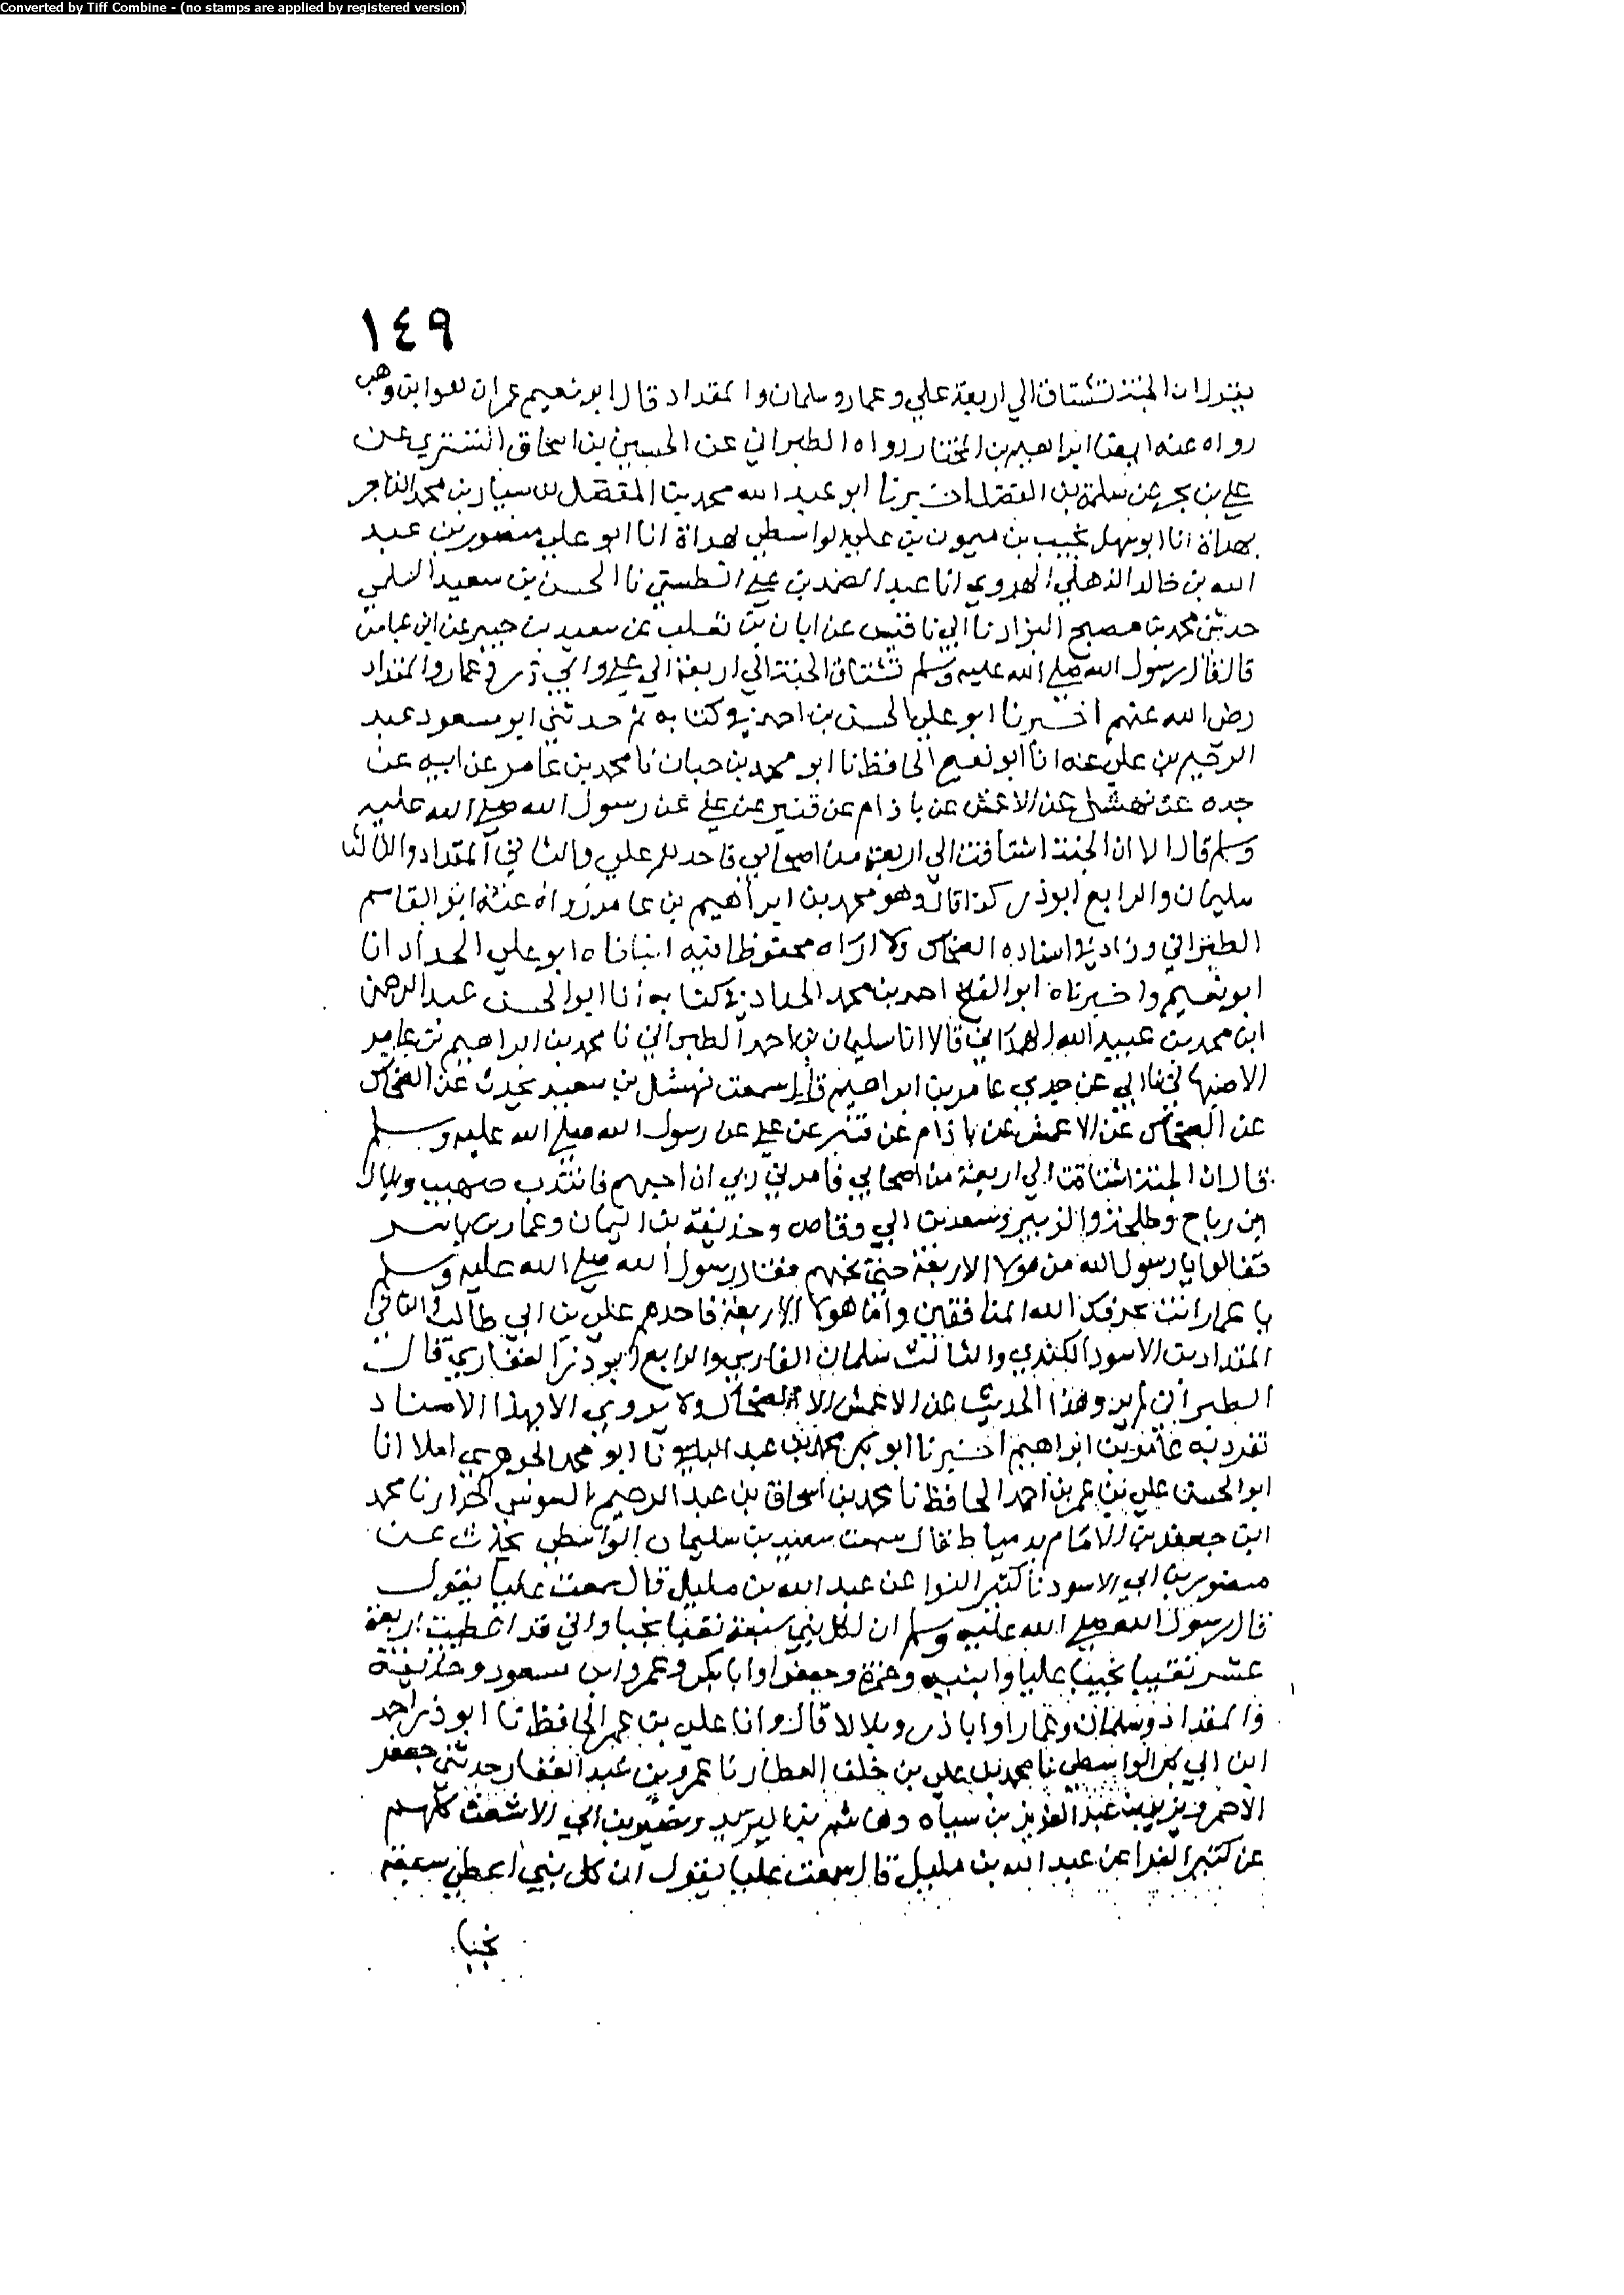 Converted by Tiff Combine - (no stamps are applied by registered version)
١٤٩
يقول ان الجنة تشتاق الي اربعة علي وعمار وسلمان والمقداد قال ابو نعيم عمران هو ابن وهب
رواه عنه ايضا ابراهيم بن المختار رواه الطبراني عن الحسين بن اسحاق التستري عن
علي بن بحر عن سلمة بن الفضل اخبرنا ابو عبد الله محمد بن المفضل بن سيار بن محمد التاجر
بهراة انا ابو سهل نجيب بن ميمون بن علي الواسطي بهراة انا ابو علي منصور بن عبد
الله بن خالد الذهلي الهروي انا عبد الصمد بن علي الطستي نا الحسن بن سعيد السلمي
حدثني محمد بن مصبح البزار نا ابي نا قيس عن ابان بن تغلب عن سعيد بن جبير عن ابن عباس
قال قال رسول الله صلى الله عليه وسلم تشتاق الجنة الي اربعة الي علي وابي ذر وعمار والمقداد
رضي الله عنهم اخبرنا ابو علي الحسن بن احمد في كتابه ثم حدثني ابو مسعود عبد
الرحيم بن علي عنه انا ابو نعيم الحافظ نا ابو محمد بن حبان نا محمد بن عامر عن ابيه عن
جده عن نهشل عن الاعمش عن باذام عن قنبر عن علي عن رسول الله صلى الله عليه
وسلم قال الا ان الجنة اشتاقت الي اربعة من اصحابي فاحدهم علي والثاني المقداد والثالث
سليمان والرابع ابوذر كذا قال وهو محمد بن ابراهيم بن عامر رواه عنه ابو القاسم
الطبراني وزاد في اسناده الضحاك ولا اراه محفوظا فيه انبانا ه ابو علي الحداد انا
ابو نعيم واخبرناه ابو الفتح احمد بن محمد الحداد في كتابه انا ابو الحسن عبد الرحمن
ابن محمد بن عبيد الله الهمداني قالا انا سليمان بن احمد الطبراني نا محمد بن ابراهيم بن عامر
الاصبهاني نا ابي عن جدي عامر بن ابراهيم قال سمعت نهشل بن سعيد يحدث عن الضحاك
عن الضحاك عن الاعمش عن باذام عن قنبر عن علي عن رسول الله صلى الله عليه وسلم
قال ان الجنة اشتاقت الي اربعة من اصحابي فامرني ربي ان احبهم فانتدب صهيب وبلال
ابن رباح وطلحة والزبير وسعد بن ابي وقاص وحذيفة بن اليمان وعمار بن ياسر
فقالوا يا رسول الله من هولا الاربعة حتى نحبهم فقال رسول الله صلى الله عليه وسلم
يا عمار انت عرفك الله المنافقين واما هولا الاربعة فاحدهم علي بن ابي طالب والثاني
المقداد بن الاسود الكندي والثالث سلمان الفارسي والرابع ابو ذر الغفاري قال
الطبراني لم يرو هذا الحديث عن الاعمش الا الضحاك ولا يروي الا بهذا الاسناد
تفرد به عامر بن ابراهيم اخبرنا ابو بكر محمد بن عبد الباقي نا ابو محمد الجوهري املا انا
ابو الحسن علي بن عمر بن احمد الحافظ نا محمد بن اسحاق بن عبد الرحيم السوسي الخزاز نا محمد
ابن جعفر بن الامام بدمياط قال سمعت سعيد بن سليمان الواسطي يحدث عن
منصور بن ابي الاسود نا كثير النوا عن عبد الله بن مليل قال سمعت عليا يقول
قال رسول الله صلى الله عليه وسلم ان لكل نبي سبعة نقبا نجبا واني قد اعطيت اربعة
عشر نقيبا نجيبا عليا وابنيه وحمزة وجعفرا وابا بكر وعمر وابن مسعود وحذيفة
والمقداد وسلمان وعمارا وابا ذر وبلالا قال وانا علي بن عمر الحافظ نا ابو ذر احمد
ابن ابي بكر الواسطي نا محمد بن علي بن خلف العطار نا عمرو بن عبد الغفار حدثني جعفر
الاحمر ويزيد بن عبد العزيز بن سياه وهاشم بن البريد ومنصور بن ابي الاسود كلهم
عن كثير النوا عن عبد الله بن مليل قال سمعت عليا يقول ان كل نبي اعطي سبعة
نجبا